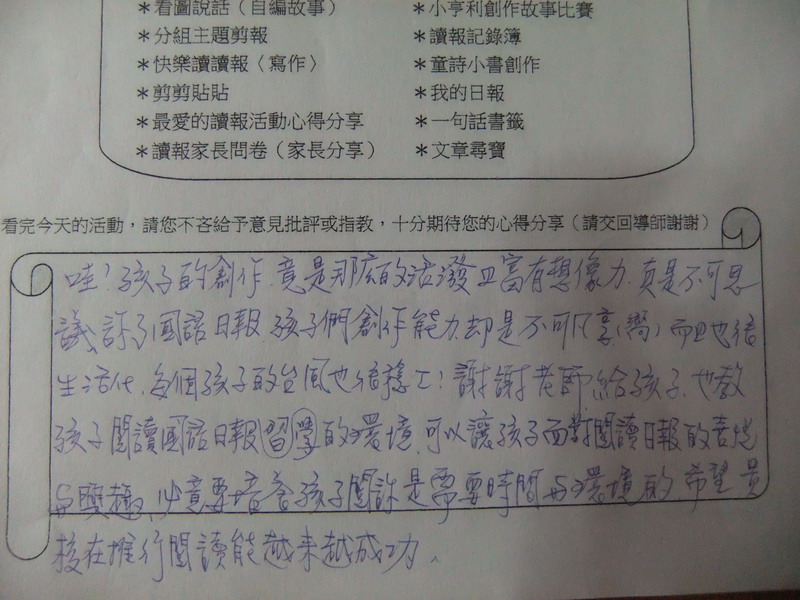 ＊看圖說話（自編故事） ＊小亨利創作故事比賽
＊分組主題剪報 ＊讀報記錄簿
＊快樂讀讀報〈寫作〉 ＊童詩小書創作
＊剪剪貼貼 ＊我的日報
＊最愛的讀報活動心得分享 ＊一句話書籤
＊讀報家長問卷（家長分享） ＊文章尋寶
看完今天的活動，請您不吝給予意見批評或指教，十分期待您的心得分享（請交回導師謝謝）
哇！孩子的創作，竟是那麼的活潑且富有想像力，真是不可思
議，訂了國語日報，孩子們創作能力，却是不可（嚮）而且也很
生活化，每個孩子的台風也很穩！謝謝老師給孩子，也教
孩子閱讀國語日報習學的環境，可以讓孩子面對閱讀日報的喜悅
與興趣，要培養孩子閱讀是需要時間與環境的，希望貴
校在推行閱讀能越来越成功。